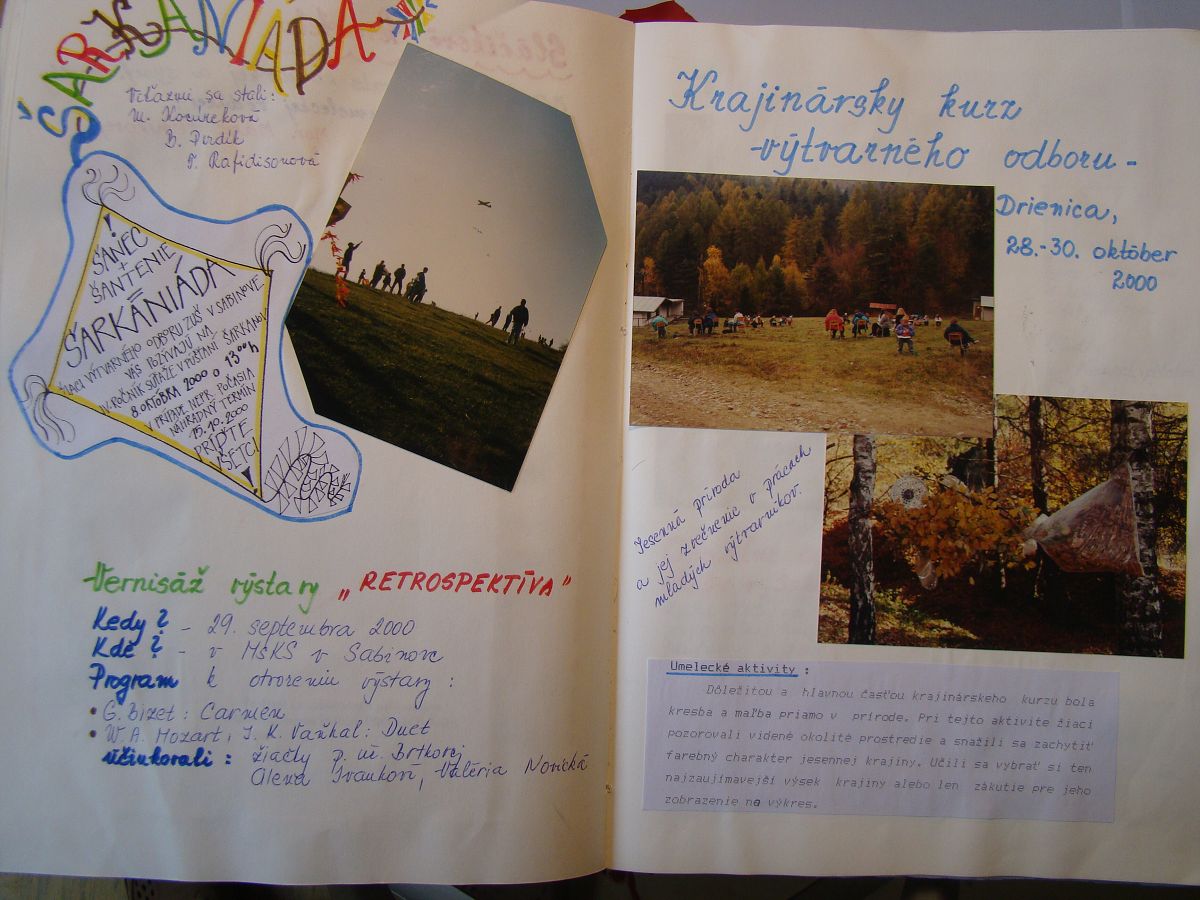 ŠARKANIÁDA
Víťazmi sa stali:
M. Kocúreková
B. Dirdík
T. Rafidisonová
!
ŠANEC
+
ŠANTENIE
ŠARKÁNIÁDA
ŽIACI VÝTVARNÉHO ODBORU ZUŠ V SABINOVE
VÁS POZÝVAJÚ NA
IV. ROČNÍK SÚŤAŽE V PÚŠŤANÍ ŠARKANOV
8. OKTÓBRA 2000 O 13 00 h
V PRÍPADE NEPR. POČASIA
NÁHRADNÝ TERMÍN
15. 10. 2000
PRÍĎTE
VŠETCI
Vernisáž výstavy „RETROSPEKTÍVA"
Kedy? - 29. septembra 2000
Kde? - v MsKS v Sabinove
Program k otvoreniu výstavy:
• G. Bizet: Carmen
• W. A. Mozart, J. K. Vaňhal: Duet
účinkovali: žiačky p. uč. Brtkovej
Alena Ivanková, Valéria Novická
Krajinársky kurz
-výtvarného odboru-
Drienica,
28.-30. október
2000
Jesenná príroda
a jej zvečnenie v prácach
mladých výtvarníkov.
Umelecké aktivity :
Dôležitou a hlavnou časťou krajinárskeho kurzu bola
kresba a maľba priamo v prírode. Pri tejto aktivite žiaci
pozorovali videné okolité prostredie a snažili sa zachytiť
farebný charakter jesennej krajiny. Učili sa vybrať si ten
najzaujímavejší výsek krajiny alebo len zákutie pre jeho
zobrazenie na výkres.